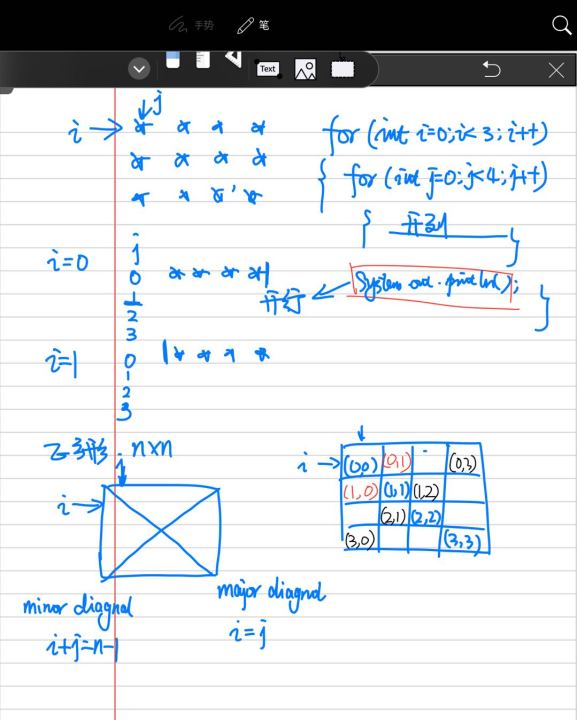 手势 笔
Text
j
i → * * * *
* * * *
* * * *
for (int i=0; i<3; i++)
{ for (int j=0; j<4; j++)
{ 开列 }
System.out.println(); }
开行
i=0
j
0 * * * *
1
2
3
i=1
0 * * * *
1
2
3
n×n
i →
minor diagnal
i+j=n-1
major diagnal
i=j
i → (0,0) (0,1) (0,3)
(1,0) (1,1) (1,2)
(2,1) (2,2)
(3,0) (3,3)